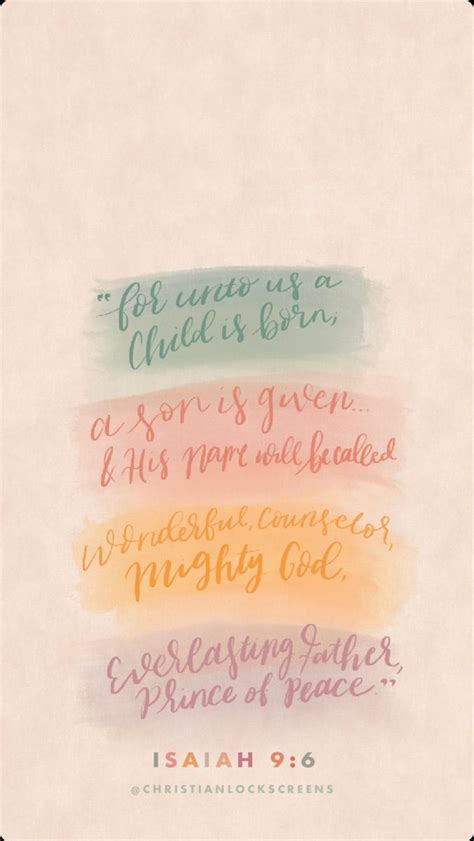 "for unto us a
Child is born,
a son is given...
& His name will be called
Wonderful, Counselor,
Mighty God,
Everlasting Father,
Prince of Peace."
ISAIAH 9:6
@CHRISTIANLOCKSCREENS